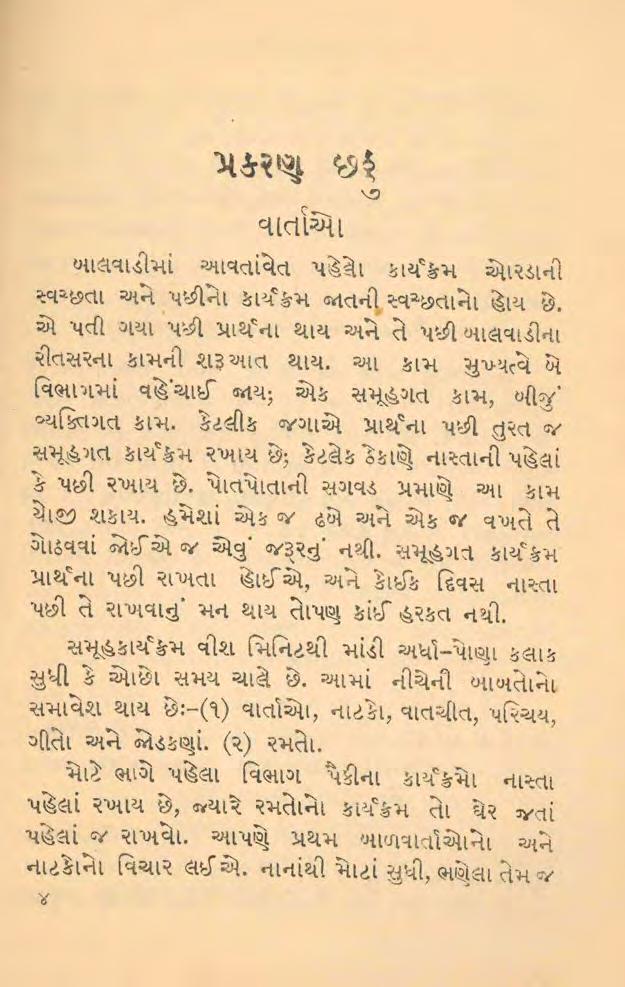 પ્રકરણ છઠ્ઠું
વાર્તાઓ
બાલવાડીમાં આવતાંવેત પહેલો કાર્યક્રમ ઓરડાની
સ્વચ્છતા અને પછીનો કાર્યક્રમ જાતની સ્વચ્છતાનો હોય છે.
એ પતી ગયા પછી પ્રાર્થના થાય અને તે પછી બાલવાડીના
રીતસરના કામની શરૂઆત થાય. આ કામ મુખ્યત્વે બે
વિભાગમાં વહેંચાઈ જાય; એક સમૂહગત કામ, બીજું
વ્યક્તિગત કામ. કેટલીક જગાએ પ્રાર્થના પછી તુરત જ
સમૂહગત કાર્યક્રમ રખાય છે; કેટલેક ઠેકાણે નાસ્તાની પહેલાં
કે પછી રખાય છે. પોતપોતાની સગવડ પ્રમાણે આ કામ
યોજી શકાય. હમેશાં એક જ ઢબે અને એક જ વખતે તે
ગોઠવવાં જોઈએ જ એવું જરૂરનું નથી. સમૂહગત કાર્યક્રમ
પ્રાર્થના પછી રાખતા હોઈએ, અને કોઈક દિવસ નાસ્તા
પછી તે રાખવાનું મન થાય તોપણ કાંઈ હરકત નથી.
સમૂહકાર્યક્રમ વીશ મિનિટથી માંડી અર્ધા-પોણા કલાક
સુધી કે ઓછો સમય ચાલે છે. આમાં નીચેની બાબતોનો
સમાવેશ થાય છેઃ-(૧) વાર્તાઓ, નાટકો, વાતચીત, પરિચય,
ગીતો અને જોડકણાં. (૨) રમતો.
મોટે ભાગે પહેલા વિભાગ પૈકીના કાર્યક્રમો નાસ્તા
પહેલાં રખાય છે, જ્યારે રમતોનો કાર્યક્રમ તો ઘેર જતાં
પહેલાં જ રાખવો. આપણે પ્રથમ બાળવાર્તાઓનો અને
નાટકોનો વિચાર લઈએ. નાનાંથી મોટાં સુધી, ભણેલા તેમ જ
૪